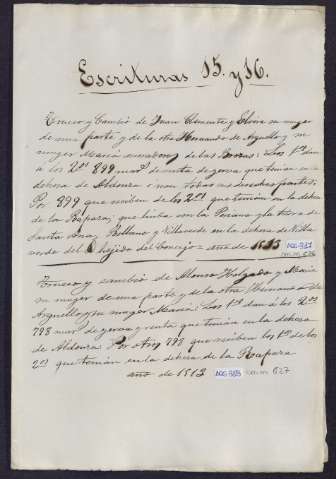 Escrituras 15. y 16.
Trueco y Cambio de Juan Clemente y Elvira su muger
de una parte y de la otra Hernando de Arguello y su
muger Maria de las Borras: Los 1os dan
á los 2os 899 mars de renta de yerva que tenian en la
dehesa de Aldoura
Por 899 que reciben de los 2os que tenian en la dehesa
de la Rapara, que linda con la y la tierra de
Santa Ana, y Villaverde en la dehesa de Villa
verde del Ehejido del Concejo = año de 1513
Trueco y cambio de Alonso Holgado y Maria
su muger de una parte y de la otra Hernando de
Arguello y su muger Maria: Los 1os dan á los 2os
798 mars de yerva y renta que tenian en la dehesa
de Aldoura. Por otros 798 que reciben los 1os de los
2os que tenian en la dehesa de la Rapara
año de 1513